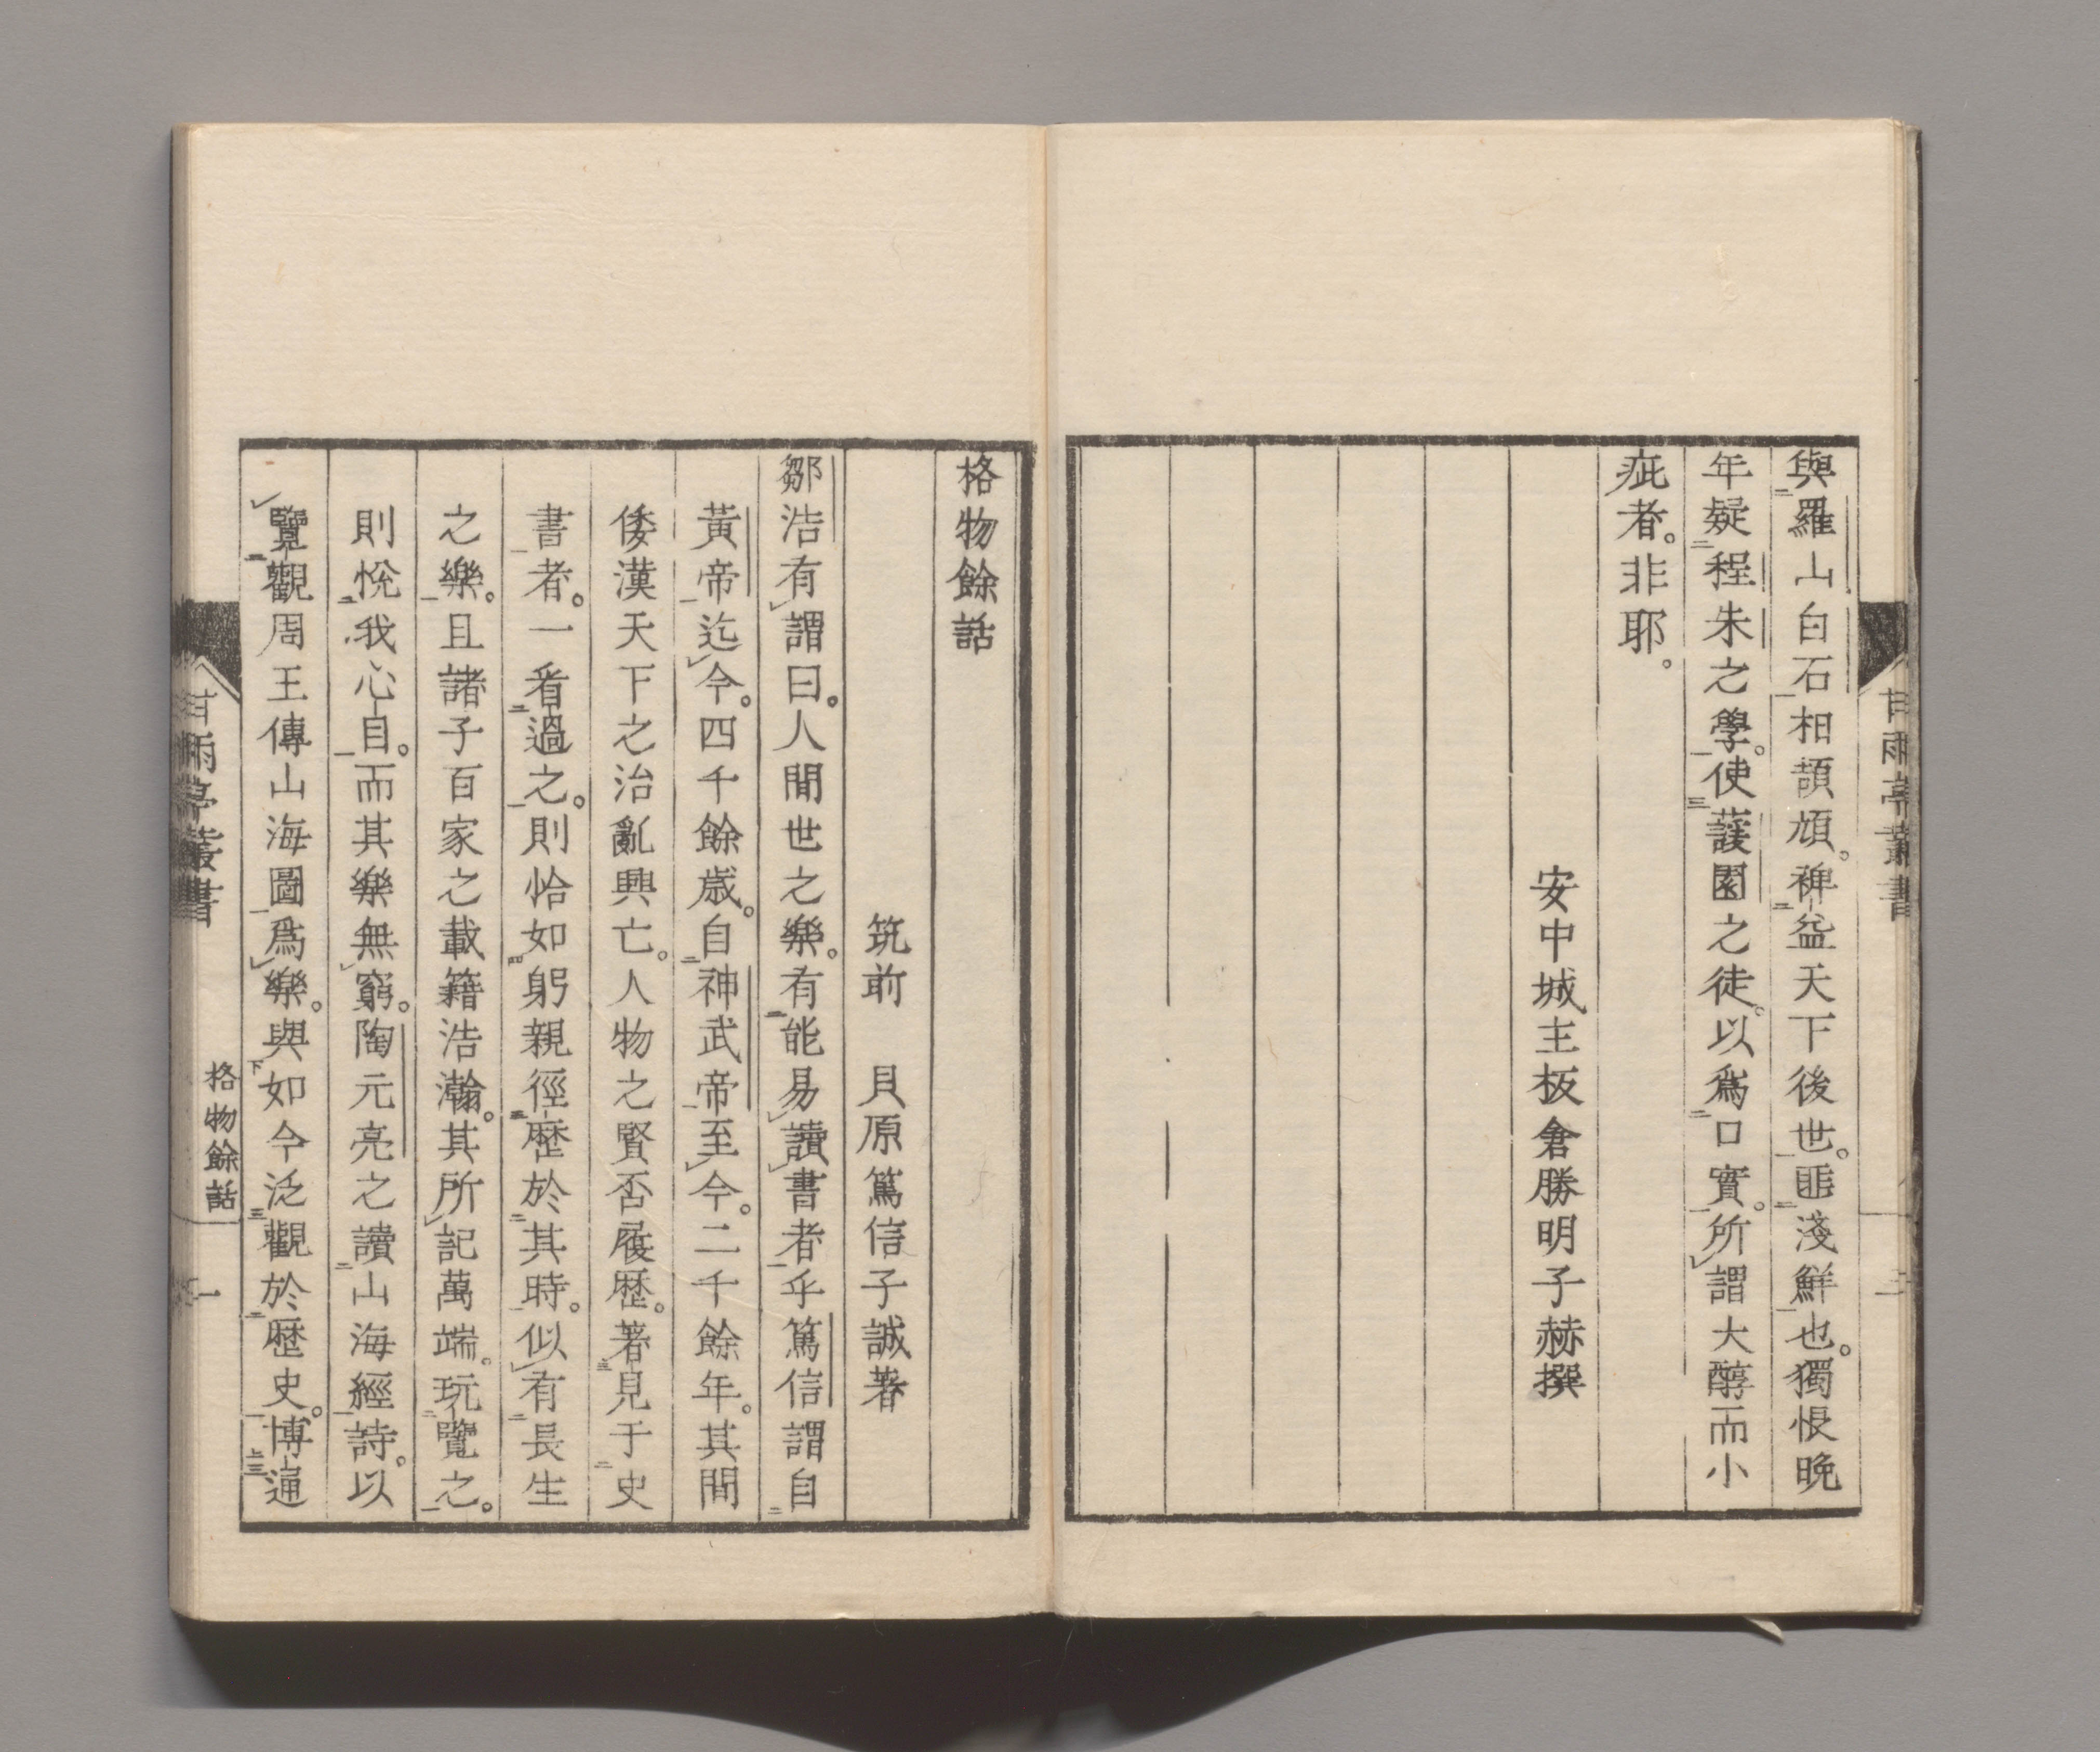 與羅山白石相頡頏。裨益天下後世。匪淺鮮也。獨恨晚
年疑程朱之學。使蘐園之徒。以爲口實。所謂大醇而小
疵者。非耶。
安中城主板倉勝明子赫撰
甘雨亭叢書
二
格物餘話
筑前 貝原篤信子誠著
鄒浩有謂曰。人間世之樂。有能易讀書者乎篤信謂自
黃帝迄今。四千餘歲。自神武帝至今。二千餘年。其間
倭漢天下之治亂興亡。人物之賢否履歷。著見于史
書者。一看過之。則恰如躬親徑歷於其時。似有長生
之樂。且諸子百家之載籍浩瀚。其所記萬端。玩覽之。
則悅我心目。而其樂無窮。陶元亮之讀山海經詩。以
覽觀周王傳山海圖爲樂。與如今泛觀於歷史。博通
甘雨亭叢書
格物餘話
一